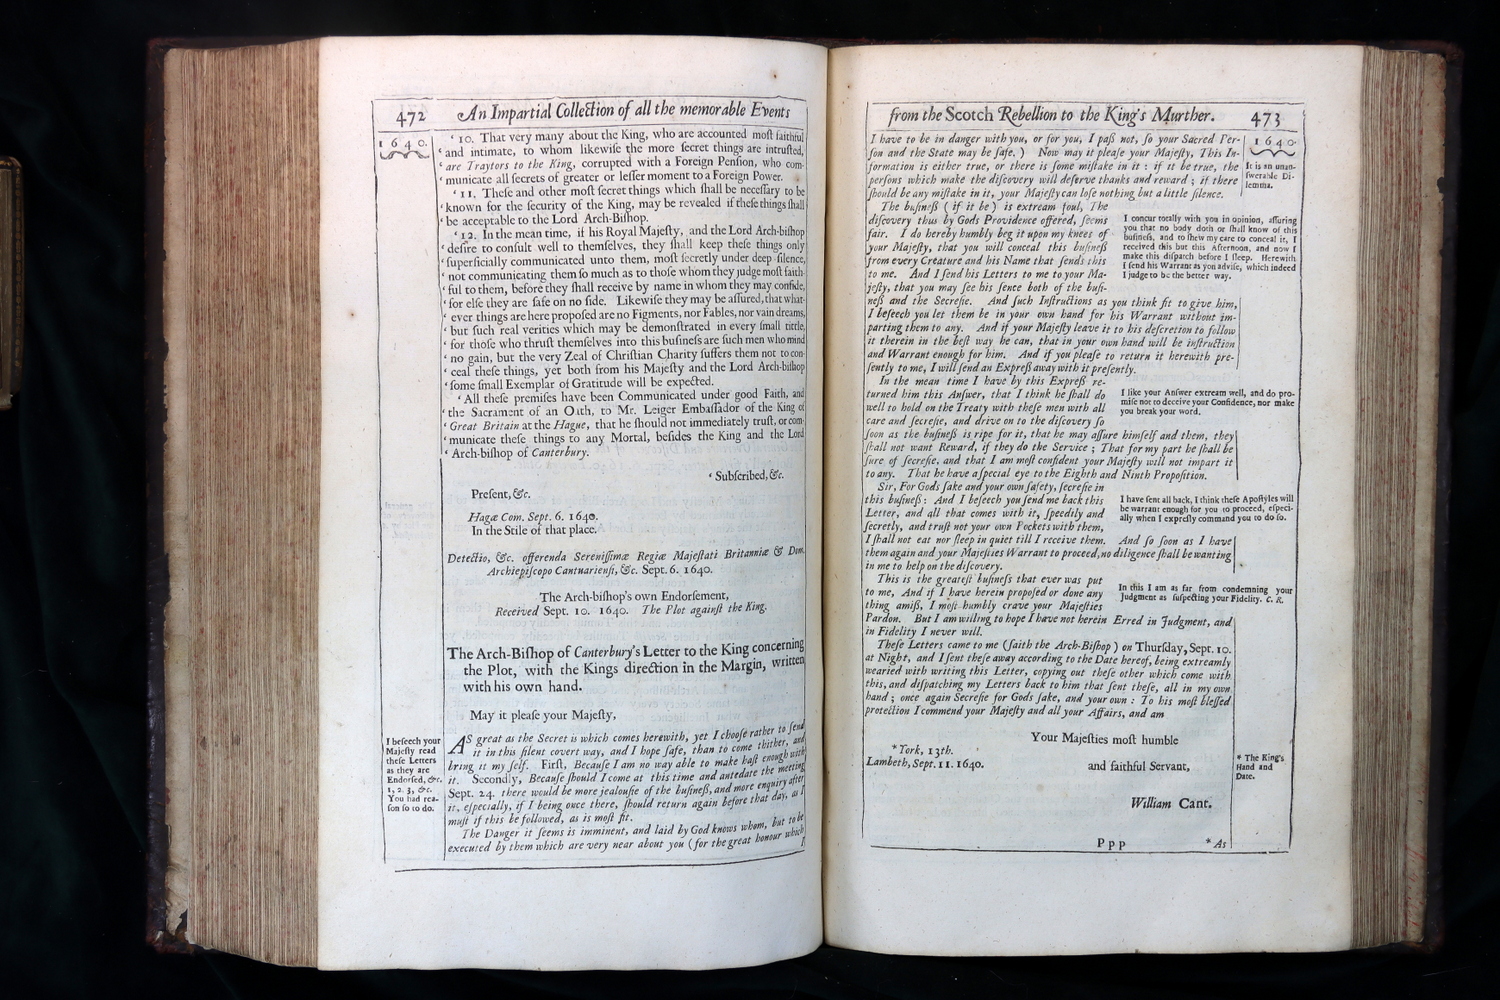 472 An Impartial Collection of all the memorable Events
1640.
‘ 10. That very many about the King, who are accounted moſt faithful
‘ and intimate, to whom likewiſe the more ſecret things are intruſted,
‘ are Traytors to the King, corrupted with a Foreign Penſion, who com-
‘ municate all ſecrets of greater or leſſer moment to a Foreign Power.
‘ 11. Theſe and other moſt ſecret things which ſhall be neceſſary to be
‘ known for the ſecurity of the King, may be revealed if theſe things ſhall
‘ be acceptable to the Lord Arch-Biſhop.
‘ 12. In the mean time, if his Royal Majeſty, and the Lord Arch-biſhop
‘ deſire to conſult well to themſelves, they ſhall keep theſe things only
‘ ſuperficially communicated unto them, moſt ſecretly under deep ſilence,
‘ not communicating them ſo much as to thoſe whom they judge moſt faith-
‘ ful to them, before they ſhall receive by name in whom they may confide,
‘ for elſe they are ſafe on no ſide. Likewiſe they may be aſſured, that what-
‘ ever things are here propoſed are no Figments, nor Fables, nor vain dreams,
‘ but ſuch real verities which may be demonſtrated in every ſmall tittle,
‘ for thoſe who thruſt themſelves into this buſineſs are ſuch men who mind
‘ no gain, but the very Zeal of Chriſtian Charity ſuffers them not to con-
‘ ceal theſe things, yet both from his Majeſty and the Lord Arch-biſhop
‘ ſome ſmall Exemplar of Gratitude will be expected.
‘ All theſe premiſes have been Communicated under good Faith, and
‘ the Sacrament of an Oath, to Mr. Leiger Embaſſador of the King of
‘ Great Britain at the Hague, that he ſhould not immediately truſt, or com-
‘ municate theſe things to any Mortal, beſides the King and the Lord
‘ Arch-biſhop of Canterbury.
‘ Subſcribed, &c.
Preſent, &c.
Hagæ Com. Sept. 6. 1640.
In the Stile of that place.
Detectio, &c. offerenda Sereniſſimæ Regiæ Majeſtati Britanniæ & Dom.
Archiepiſcopo Cantuarienſi, &c. Sept. 6. 1640.
The Arch-biſhop's own Endorſement,
Received Sept. 10. 1640. The Plot againſt the King.
The Arch-Biſhop of Canterbury's Letter to the King concerning
the Plot, with the Kings direction in the Margin, written
with his own hand.
May it pleaſe your Majeſty,
AS great as the Secret is which comes herewith, yet I chooſe rather to ſend
it in this ſilent covert way, and I hope ſafe, than to come thither, and
bring it my ſelf. Firſt, Becauſe I am no way able to make haſt enough with
it. Secondly, Becauſe ſhould I come at this time and antedate the meeting
Sept. 24. there would be more jealouſie of the buſineß, and more enquiry after
it, eſpecially, if I being once there, ſhould return again before that day, as I
muſt if this be followed, as is moſt fit.
The Danger it ſeems is imminent, and laid by God knows whom, but to be
executed by them which are very near about you (for the great honour which
I beſeech your
Majeſty read
theſe Letters
as they are
Endorſed, &c.
1, 2. 3, &c.
You had rea-
ſon ſo to do.
from the Scotch Rebellion to the King's Murther. 473
1640.
I have to be in danger with you, or for you, I paß not, ſo your Sacred Per-
ſon and the State may be ſafe. ) Now may it pleaſe your Majeſty, This In-
formation is either true, or there is ſome miſtake in it : if it be true, the
perſons which make the diſcovery will deſerve thanks and reward ; if there
ſhould be any miſtake in it, your Majeſty can loſe nothing but a little ſilence.
It is an unan-
ſwerable Di-
lemma.
The buſineß ( if it be ) is extream foul, The
diſcovery thus by Gods Providence offered, ſeems
fair. I do hereby humbly beg it upon my knees of
your Majeſty, that you will conceal this buſineß
from every Creature and his Name that ſends this
to me. And I ſend his Letters to me to your Ma-
jeſty, that you may ſee his ſence both of the buſi-
neß and the Secreſie. And ſuch Inſtructions as you think fit to give him,
I beſeech you let them be in your own hand for his Warrant without im-
parting them to any. And if your Majeſty leave it to his deſcretion to follow
it therein in the beſt way he can, that in your own hand will be inſtruction
and Warrant enough for him. And if you pleaſe to return it herewith pre-
ſently to me, I will ſend an Expreß away with it preſently.
I concur totally with you in opinion, aſſuring
you that no body doth or ſhall know of this
buſineſs, and to ſhew my care to conceal it, I
received this but this Afternoon, and now I
make this diſpatch before I ſleep. Herewith
I ſend his Warrant as you adviſe, which indeed
I judge to be the better way.
In the mean time I have by this Expreß re-
turned him this Anſwer, that I think he ſhall do
well to hold on the Treaty with theſe men with all
care and ſecreſie, and drive on to the diſcovery ſo
ſoon as the buſineß is ripe for it, that he may aſſure himſelf and them, they
ſhall not want Reward, if they do the Service ; That for my part he ſhall be
ſure of ſecreſie. and that I am moſt confident your Majeſty will not impart it
to any. That he have a ſpecial eye to the Eighth and Ninth Propoſition.
I like your Anſwer extream well, and do pro-
miſe not to deceive your Confidence, nor make
you break your word.
Sir, For Gods ſake and your own ſafety, ſecreſie in
this buſineß : And I beſeech you ſend me back this
Letter, and all that comes with it, ſpeedily and
ſecretly, and truſt not your own Pockets with them,
I ſhall not eat nor ſleep in quiet till I receive them. And ſo ſoon as I have
them again and your Majeſties Warrant to proceed, no diligence ſhall be wanting
in me to help on the diſcovery.
I have ſent all back, I think theſe Apoſtyles will
be warrant enough for you to proceed, eſpeci-
ally when I expreſly command you to do ſo.
This is the greateſt buſineſs that ever was put
to me, And if I have herein propoſed or done any
thing amiß, I moſt humbly crave your Majeſties
Pardon. But I am willing to hope I have not herein Erred in Judgment, and
in Fidelity I never will.
In this I am as far from condemning your
Judgment as ſuſpecting your Fidelity. C. R.
Theſe Letters came to me (ſaith the Arch-Biſhop ) on Thurſday, Sept. 10.
at Night, and I ſent theſe away according to the Date hereof, being extreamly
wearied with writing this Letter, copying out theſe other which come with
this, and diſpatching my Letters back to him that ſent theſe, all in my own
hand ; once again Secreſie for Gods ſake, and your own : To his moſt bleſſed
protection I commend your Majeſty and all your Affairs, and am
Your Majeſties moſt humble
* York, 13th.
Lambeth, Sept. 11. 1640.
and faithful Servant,
* The King's
Hand and
Date.
William Cant.
Ppp
* As